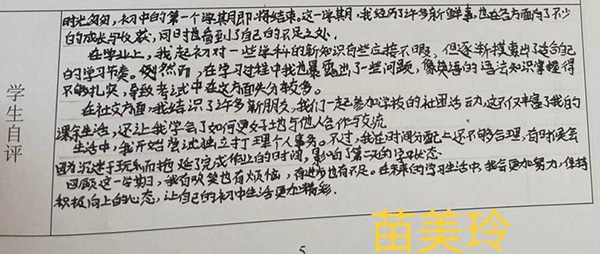 时光匆匆，初中的第一个学期即将结束。这一学期，我经历了许多新鲜事，也在各方面有了不少
的成长与收获，同时也看到了自己的不足之处。
在学业上，我起初对一些学科的新知识有些应接不暇，但逐渐摸索出了适合自己
的学习节奏。然而，在学习过程中我也暴露出了一些问题，像英语的语法知识掌握得
不够扎实，导致考试中在这方面失分较多。
在社交方面，我结识了许多新朋友，我们一起参加学校的社团活动，这不仅丰富了我的
课余生活，还让我学会了如何更好地与他人合作与交流。
生活中，我开始尝试独立打理个人事务。不过，我在时间分配上还不够合理，有时候会
因为沉迷于玩乐而拖延了完成作业的时间，影响了第二天的学习状态。
回顾这一学期，我有欢笑也有烦恼，有进步也有不足。在未来的学习生活中，我会更加努力，保持
积极向上的心态，让自己的初中生活更加精彩。
学生自评
苗美玲
5